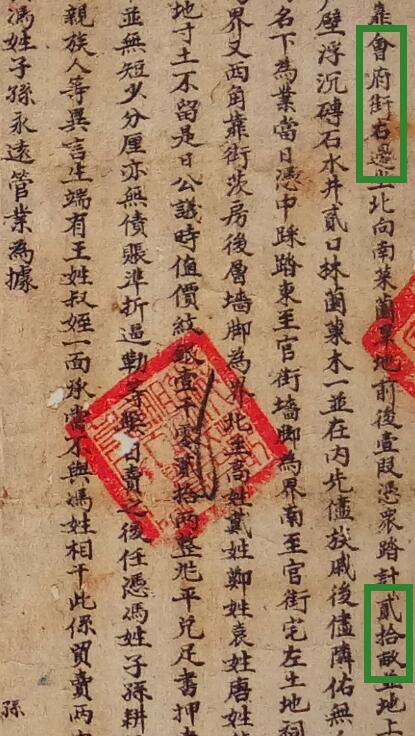 靠會府街右邊坐北向南菜蘭菓地前後壹段憑眾踏計貳拾畝並地上
壁浮沉磚石水井貳口抹蘭菓木一並在內先儘放戚後儘隣佑無
名下為業當日憑中踩踏東至官街墻脚為界南至官街宅左土地祠
界又西角靠街茨房後層墻脚為界北至高姓黃姓鄭姓袁姓唐姓
地寸土不留是日公議時值價紋銀壹千零貳拾兩整兆平兌足書押
並無短少分厘亦無債賬準折逼勒等弊自賣之後任憑馮姓子孫耕
親族人等異言生端有王姓叔姪一面承當不與馮姓相干此係買賣兩
馮姓子孫永遠管業為據
孫